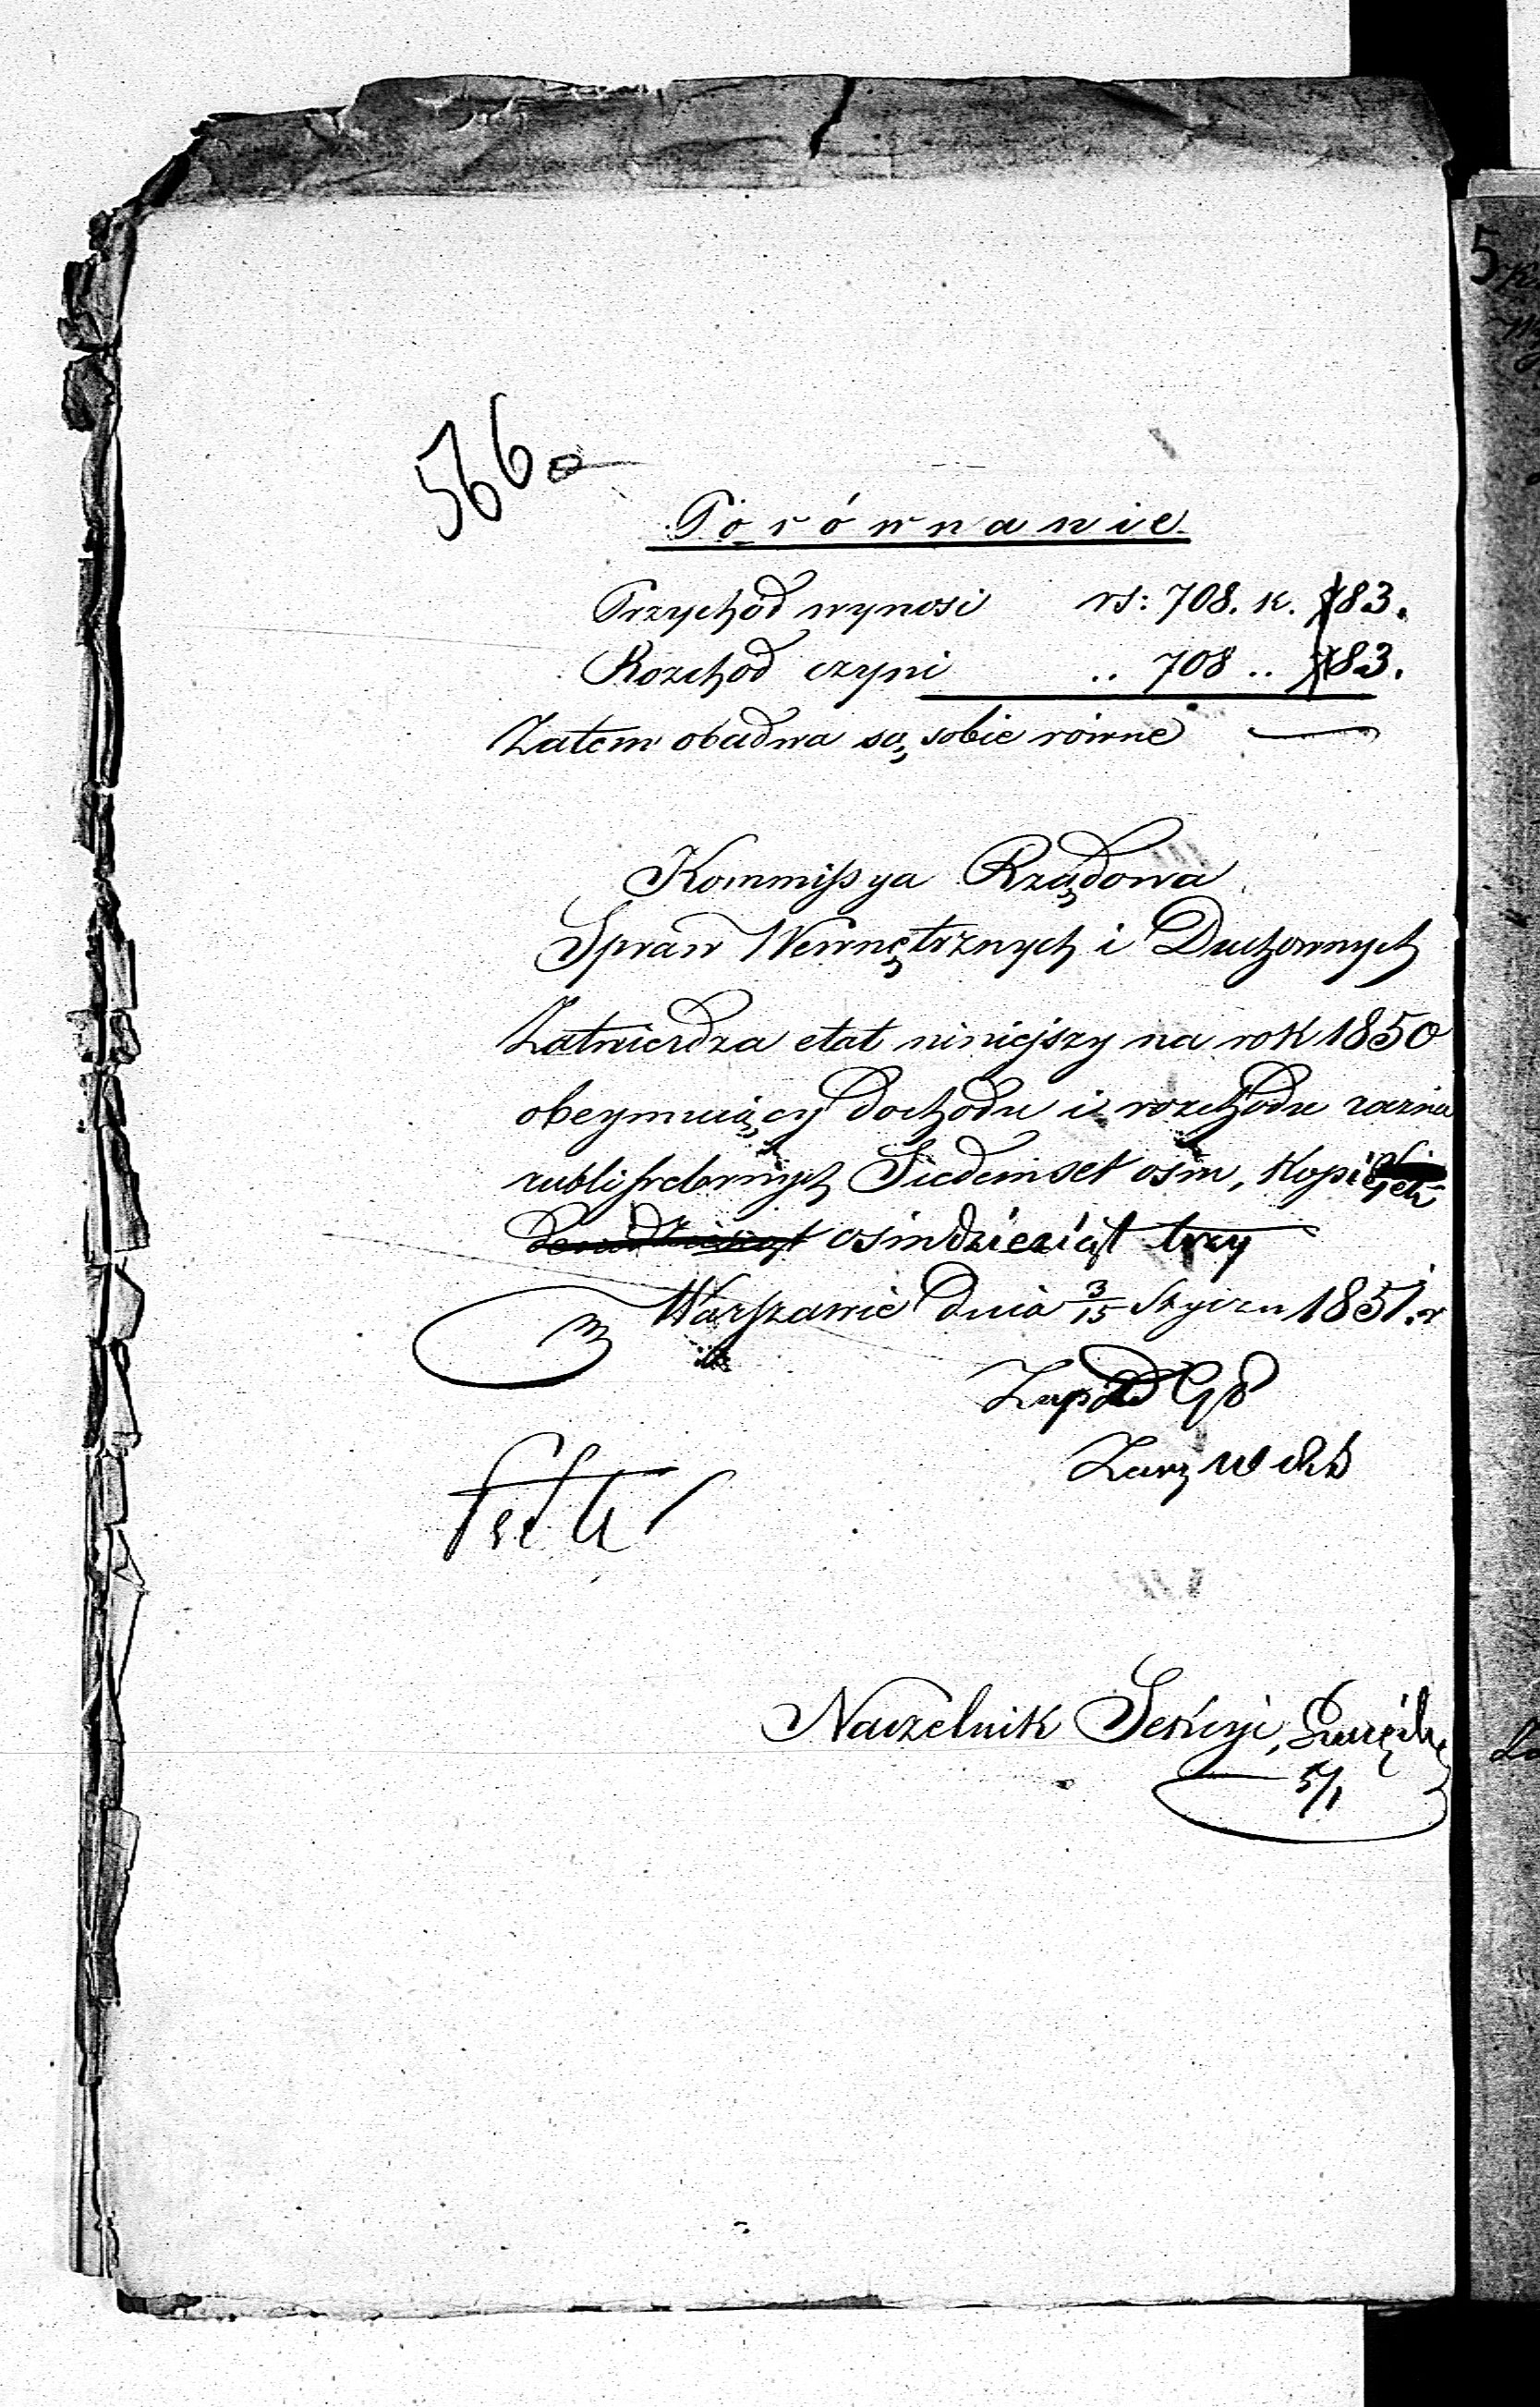 566
Porównanie
Przychód wynosi rs: 708. k. 83.
Rozchód czyni .. 708 .. 83.
Zatem obadwa są sobie równe
Kommissya Rządowa
Spraw Wewnętrznych i Duchownych
Zatwierdza etat niniejszy na rok 1850
obeymuiący dochodu i rozchodu razna
rubli srebrnych Siedemset osm, Kopiejek
osmdziesiąt trzy
w Warszawie dnia 3/15 Stycz 1851 r
Naczelnik Sekcyi,
5/1